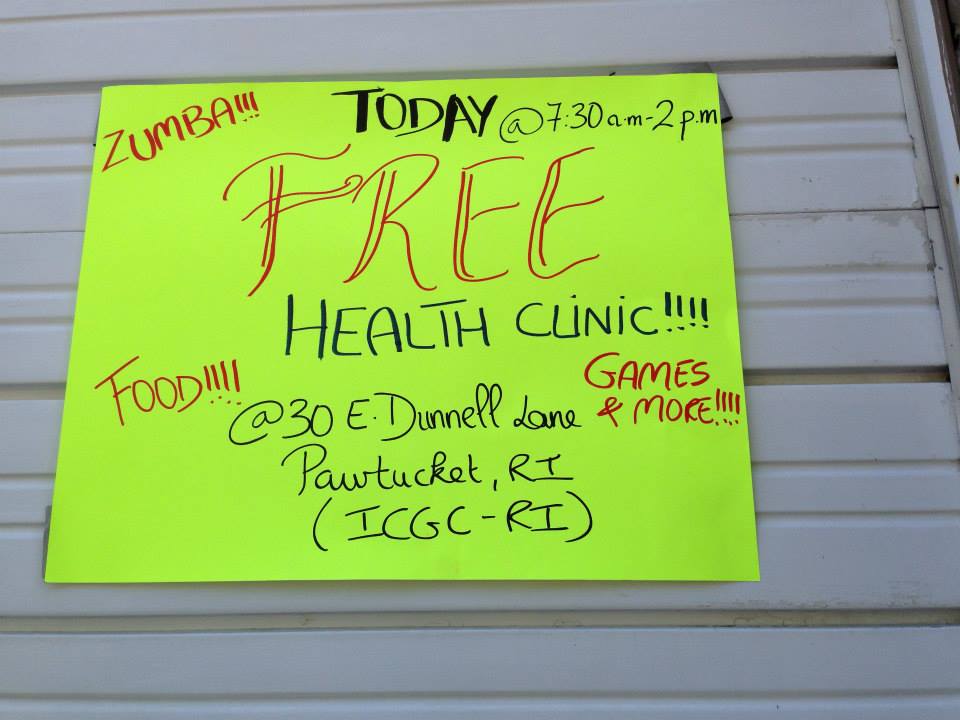 ZUMBA!!!
TODAY @7:30a.m-2p.m
FREE
HEALTH CLINIC!!!!
FOOD!!!!
GAMES
& MORE!!!!
@30 E. Dunnell Lane
Pawtucket, RI
(ICGC-RI)